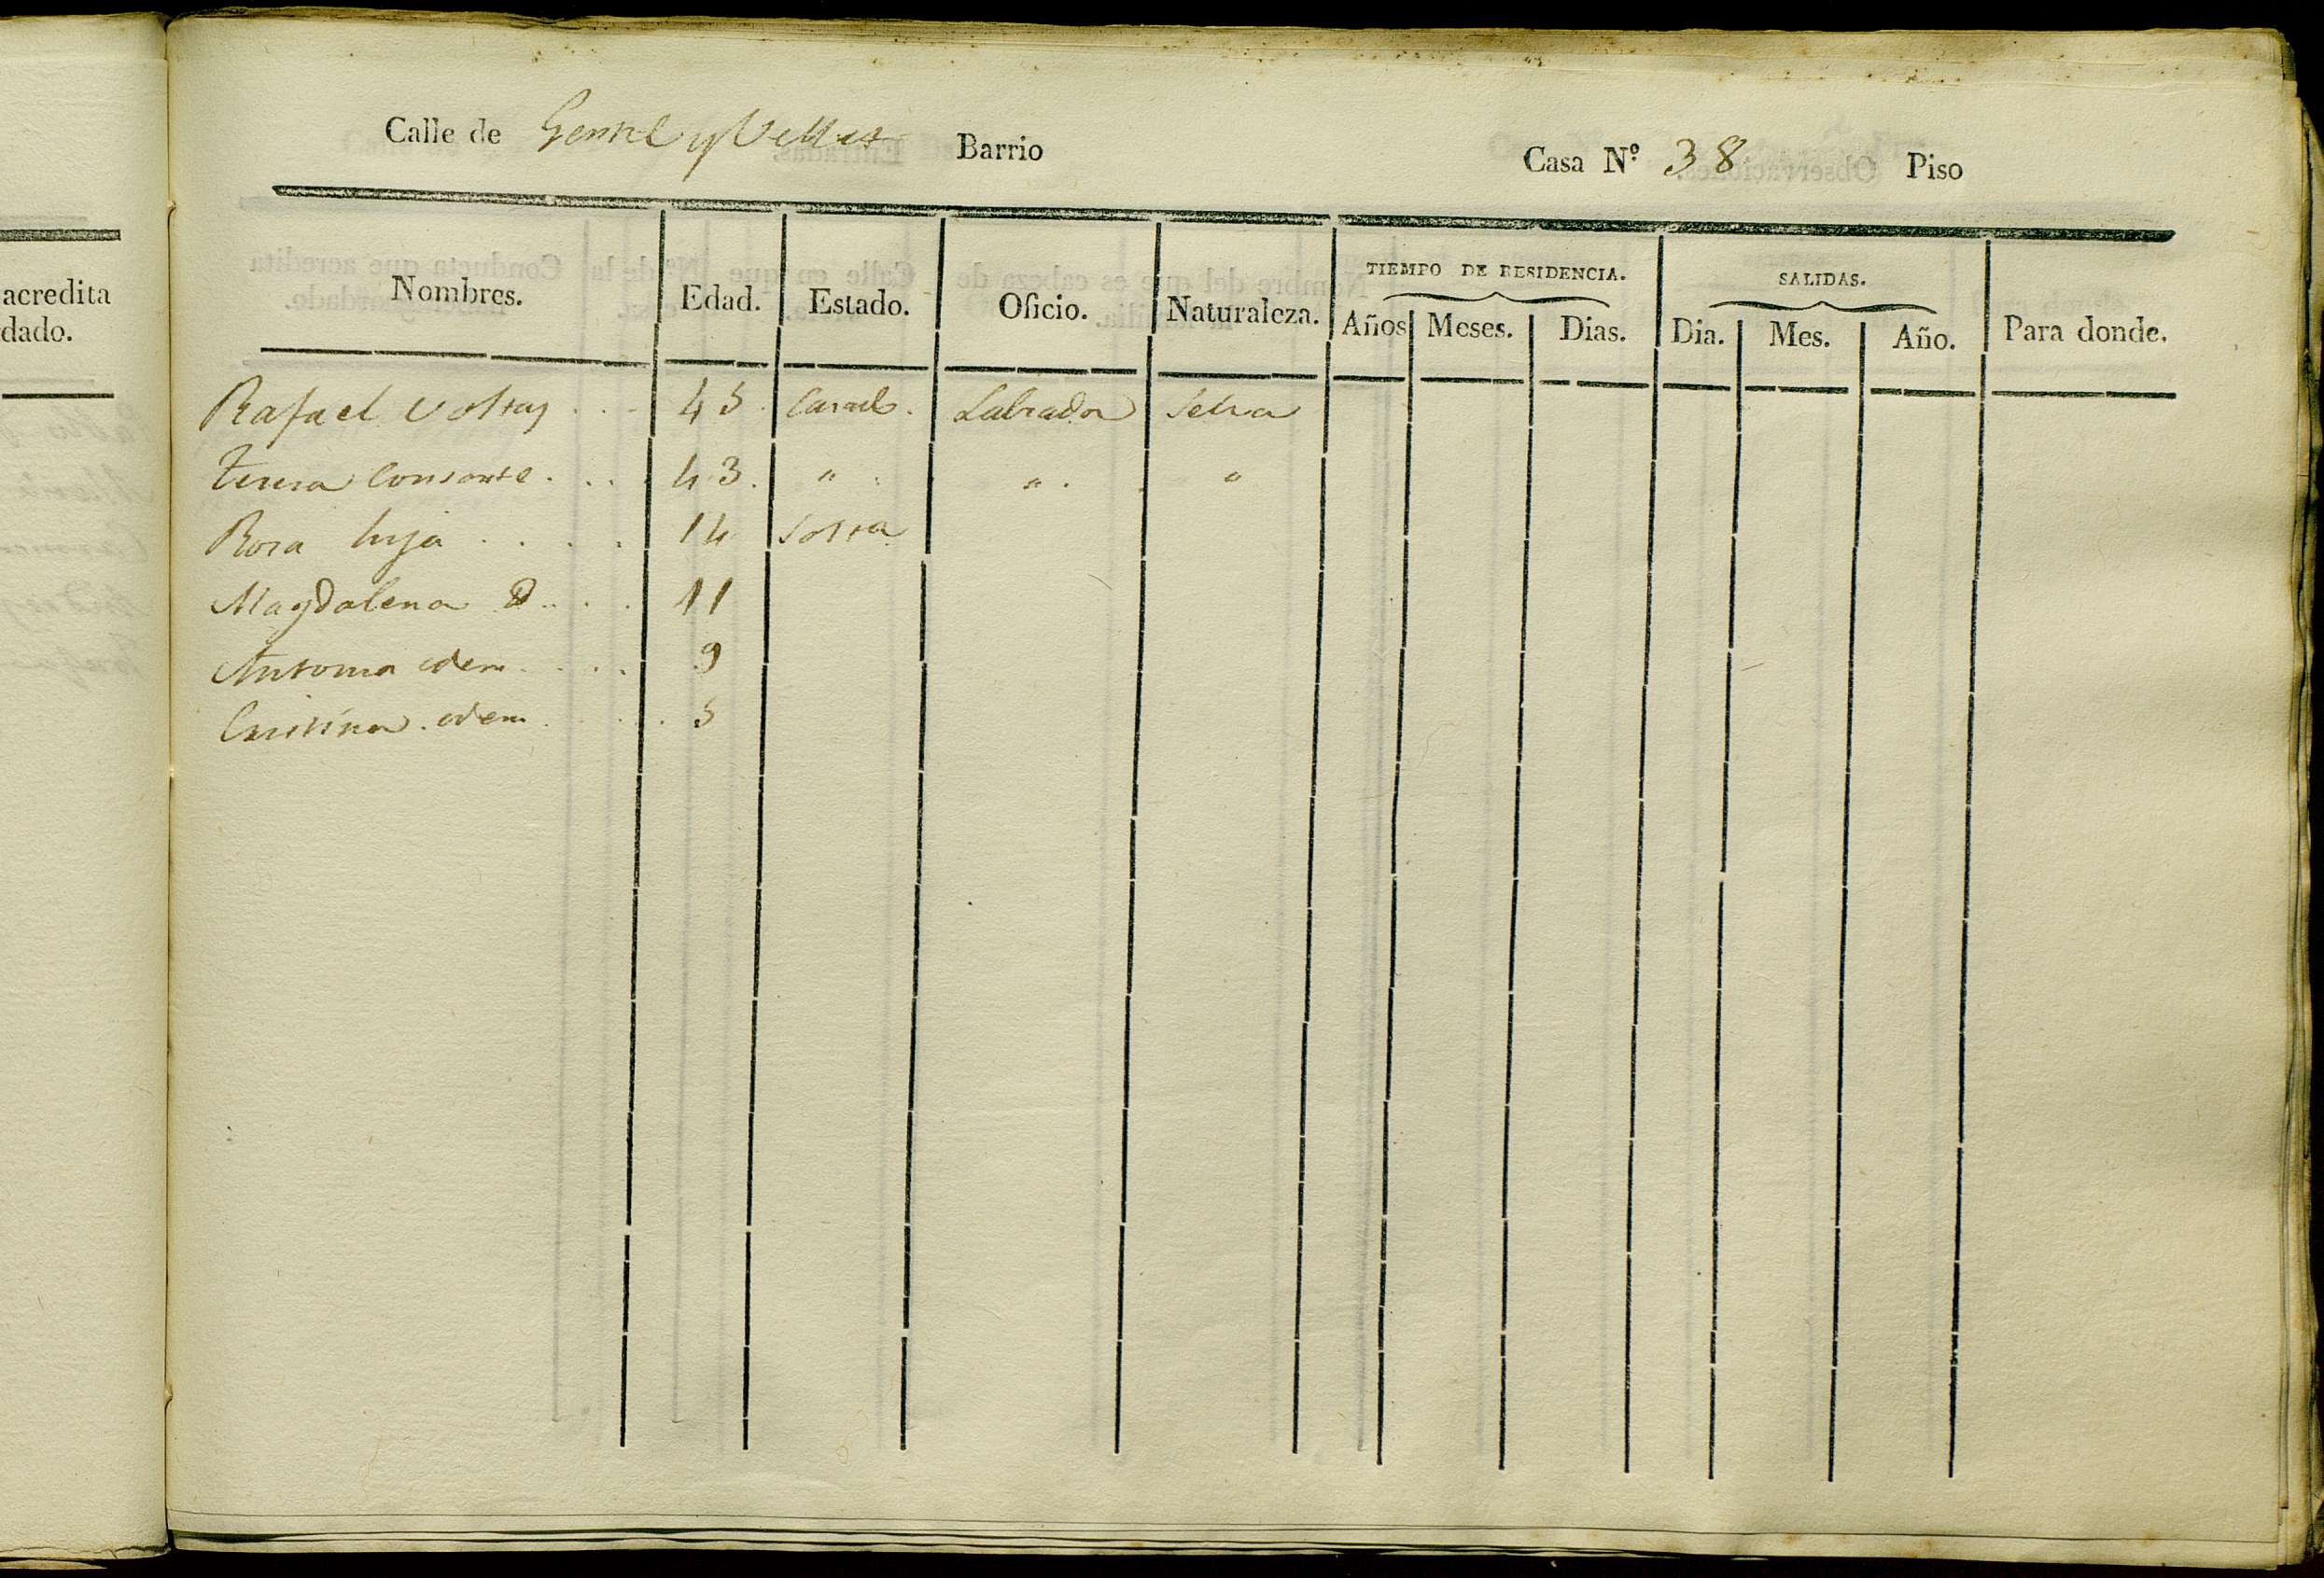 acredita
dado.
Calle de Gentil y Vellas Barrio Casa Nº 38 Piso
Nombres. Edad. Estado. Oficio. Naturaleza. TIEMPO DE RESIDENCIA. Años Meses. Dias. SALIDAS. Dia. Mes. Año. Para donde.
Rafael Voltas 45 Casado. Labrador Selva
Teresa Consante 43. " " "
Rosa hija 14 Solta
Magdalena D. 11
Antonia idem 9
Cristina idem 5